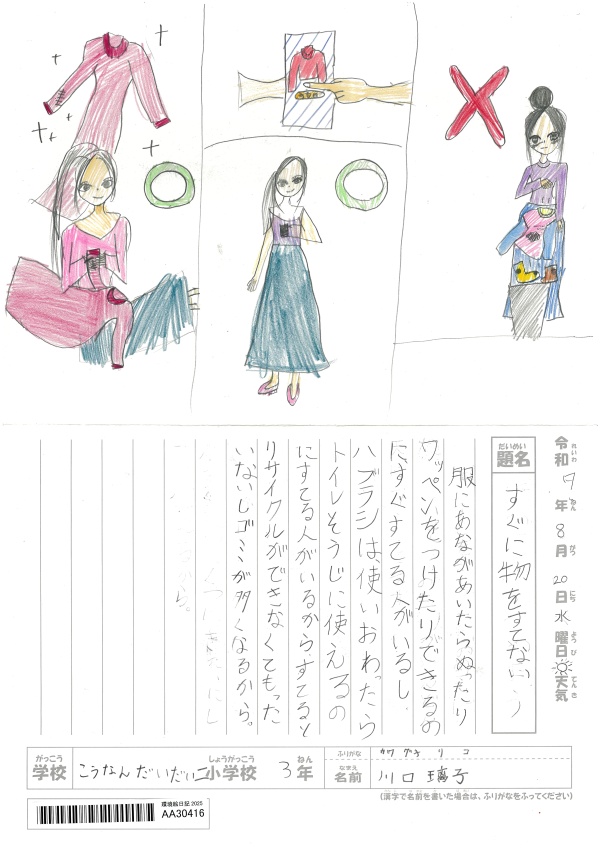 令和7年8月20日水曜日天気
れいわ ねん がつ にち ようび てんき
だいめい
題名
すぐに物をすてない!
服にあながあいたらぬったり
ワッペンをつけたりできるの
にすぐすてる人がいるし、
ハブラシは、使いおわったら
トイレそうじに使えるの
にすてる人がいるから。すてると
リサイクルができなくてもった
いないしゴミが多くなるから。
がっこう
学校
こうなんだいだい二小学校
しょうがっこう
3年
ねん
ふりがな
カワグチリコ
なまえ
名前
川口璃子
(漢字で名前を書いた場合は、ふりがなをふってください)
環境絵日記2025
AA30416